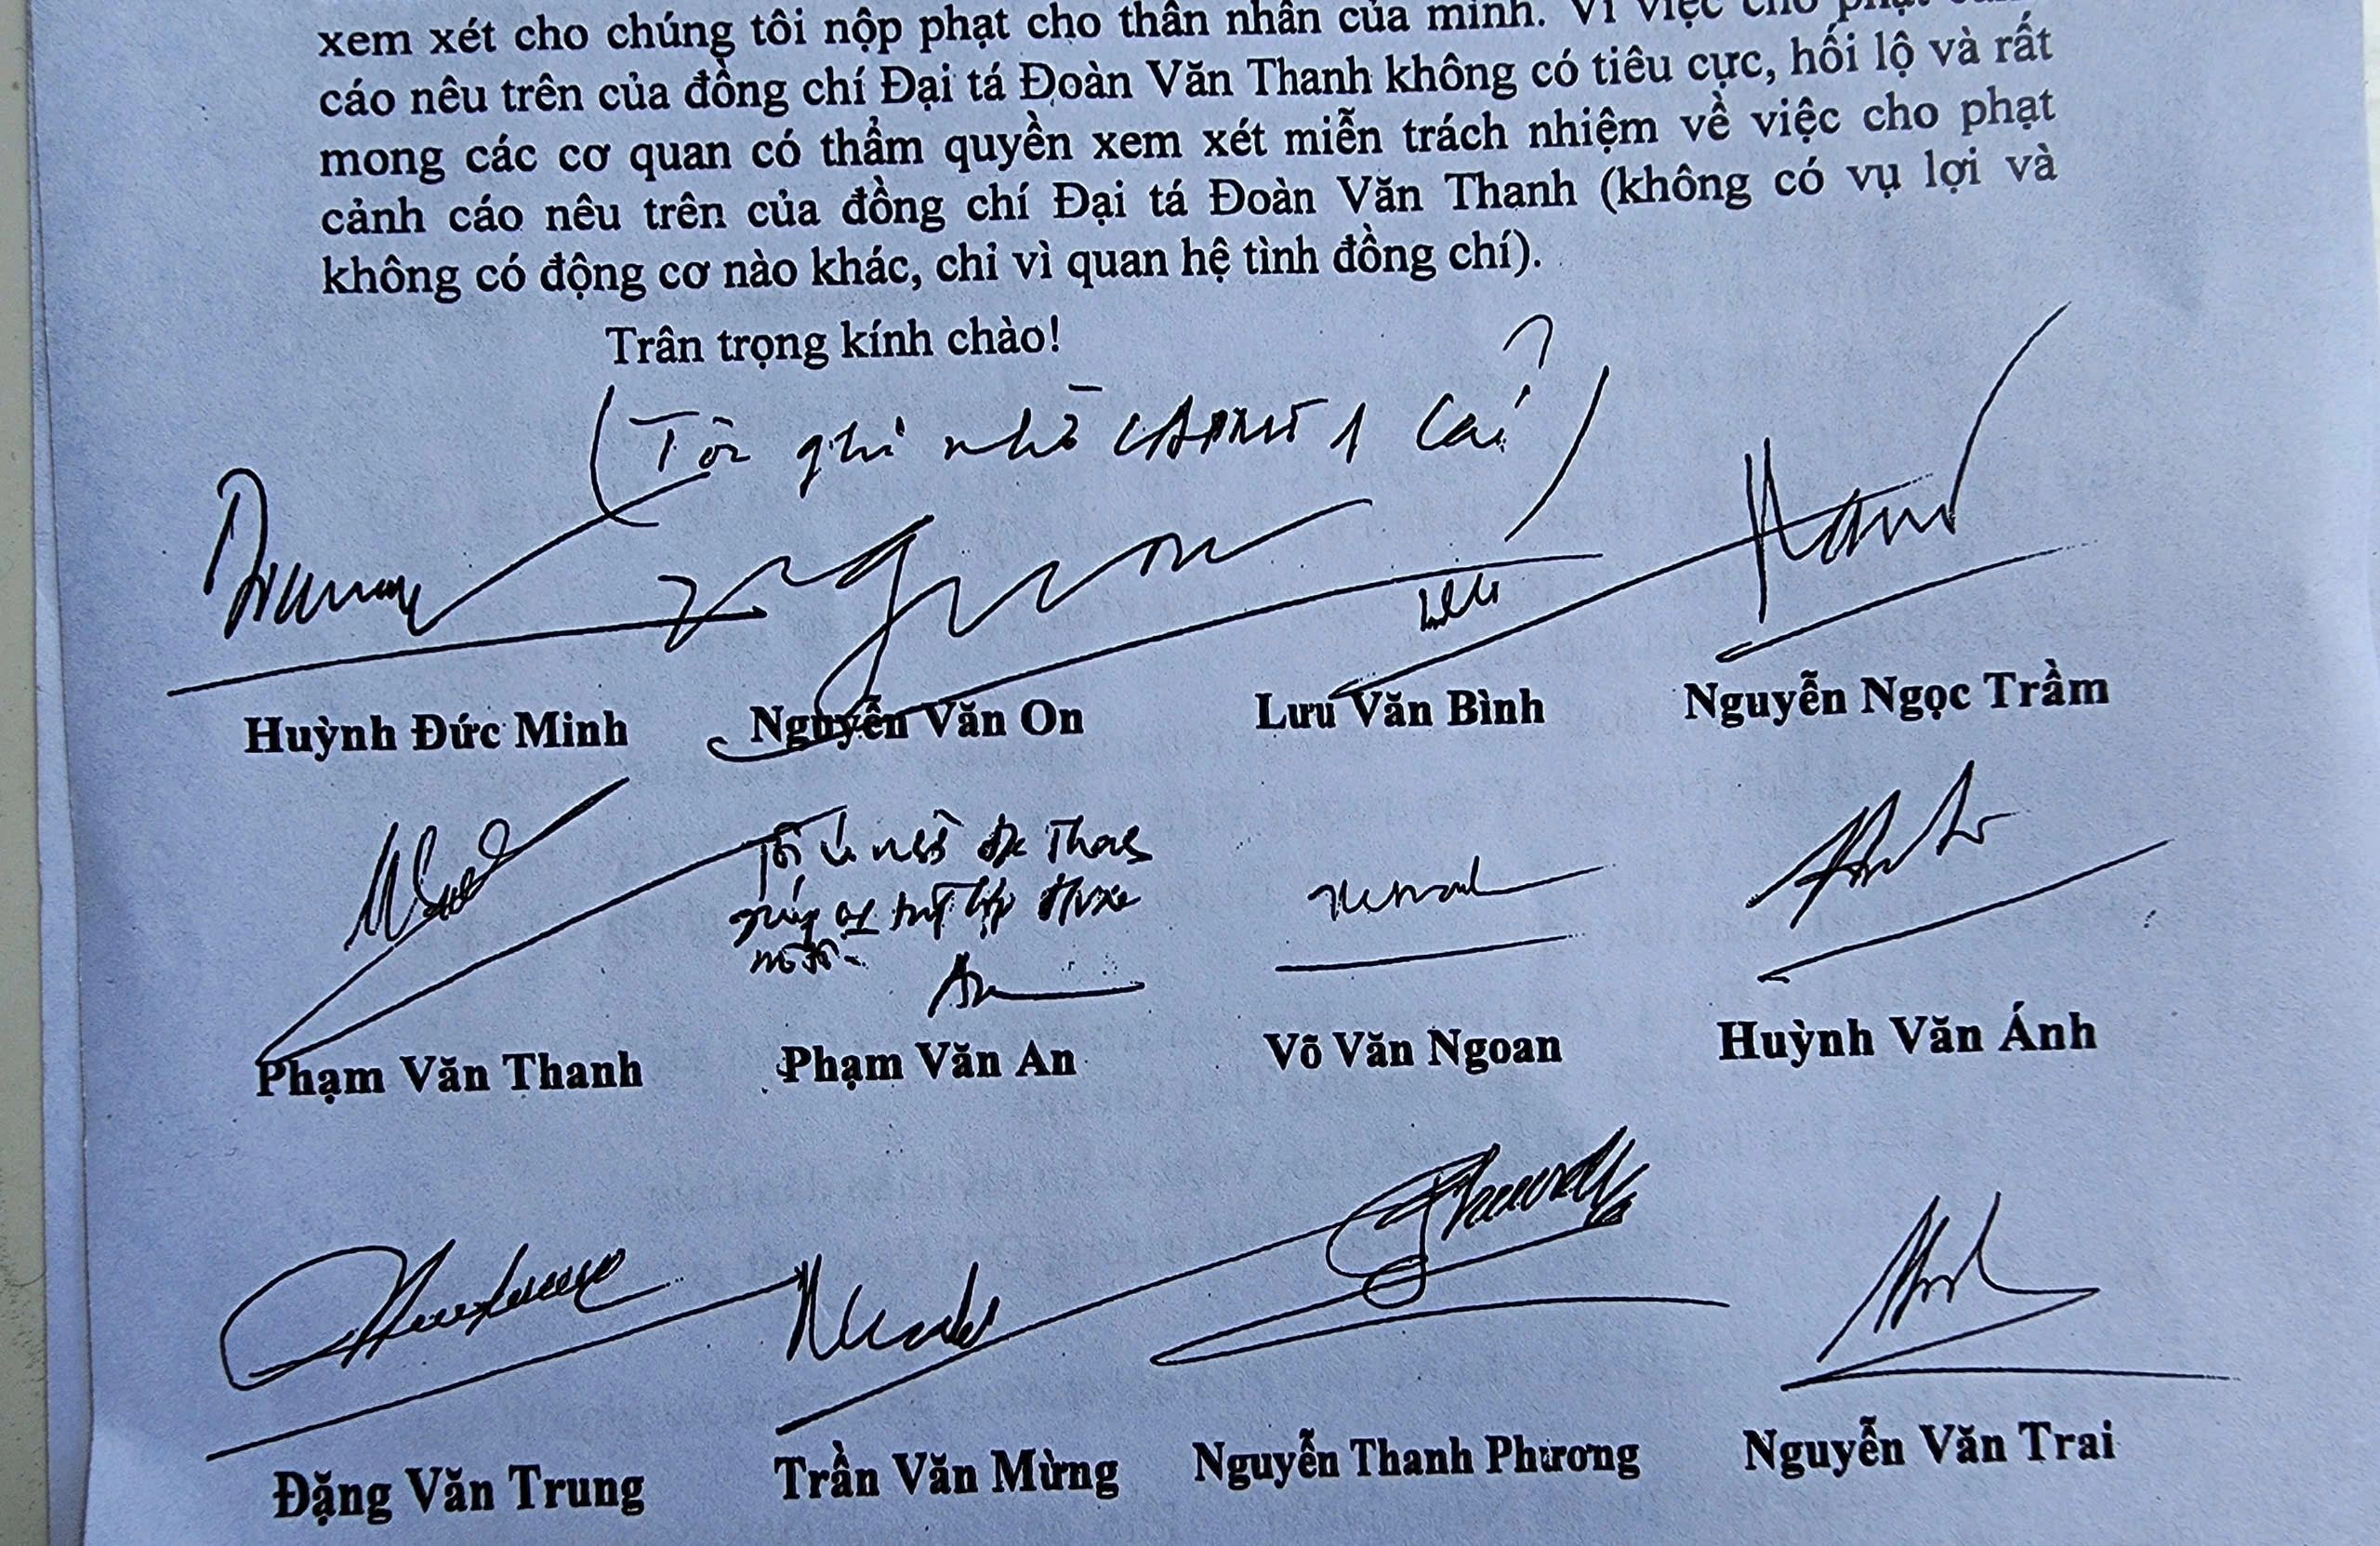 xem xét cho chúng tôi nộp phạt cho thân nhân của mình. Vì việc cho phạt
cáo nêu trên của đồng chí Đại tá Đoàn Văn Thanh không có tiêu cực, hối lộ và rất
mong các cơ quan có thẩm quyền xem xét miễn trách nhiệm về việc cho phạt
cảnh cáo nêu trên của đồng chí Đại tá Đoàn Văn Thanh (không có vụ lợi và
không có động cơ nào khác, chỉ vì quan hệ tình đồng chí).
Trân trọng kính chào!
(Tôi ghi nhờ 1 cái)
Huỳnh Đức Minh Nguyễn Văn On Lưu Văn Bình Nguyễn Ngọc Trầm
Phạm Văn Thanh Phạm Văn An Võ Văn Ngoan Huỳnh Văn Ánh
Đặng Văn Trung Trần Văn Mừng Nguyễn Thanh Phương Nguyễn Văn Trai